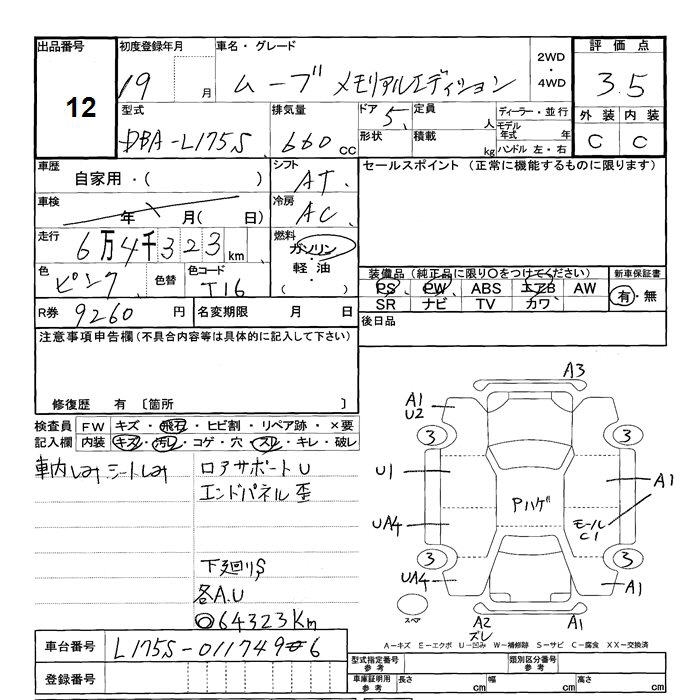 出品番号
12
初度登録年月
19 月
車名・グレード
ムーブ メモリアルエディション
2WD
・
4WD
評価点
3.5
外装 内装
C C
型式
DBA-L175S
排気量
660 cc
ドア 5
形状
定員 人
積載 kg
ディーラー・並行
モデル年式 年
ハンドル 左・右
車歴
自家用・( )
シフト
AT
車検
年 月( 日)
冷房
AC
走行
6万4千323 km
燃料
ガソリン
・
軽油
( )
色
ピンク
色替
色コード
T16
R券 9260 円
名変期限 月 日
セールスポイント (正常に機能するものに限ります)
装備品(純正品に限り○をつけてください)
PS PW ABS エアB AW
SR ナビ TV カワ
新車保証書
有・無
後日品
注意事項申告欄(不具合内容等は具体的に記入して下さい)
修復歴 有 〔箇所 〕
検査員記入欄
FW キズ・飛石・ヒビ割・リペア跡・×要
内装 キズ・汚レ・コゲ・穴・スレ・キレ・破レ
車内しみ シートしみ
ロアサポートU
エンドパネル歪
下廻りS
各A.U
◎64323Km
A3
A1
U2
3 3
U1
A1
Pハゲ
UA4
モール
C1
3 3
UA4
A1
スペア
A2
ズレ
A1
A－キズ E－エクボ U－凹み W－補修跡 S－サビ C－腐食 XX－交換済
車台番号 L175S-0117496
登録番号
型式指定番号 参考
類別区分番号 参考
車庫証明用 参考
長さ cm 幅 cm 高さ cm